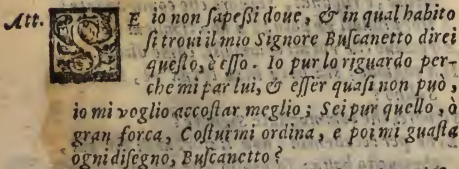 Att. SE io non sapeßi doue, & in qual habito
si troui il mio Signore Buscanetto direi
questo, è esso. Io pur lo riguardo per-
che mi par lui, & esser quasi non può,
io mi voglio accostar meglio; Sei pur quello, ò
gran forca, Costui mi ordina, e poi mi guasta
ogni disegno, Buscanetto?